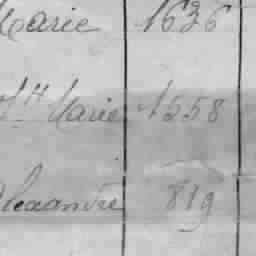 Marie 1636
Ste Marie 1558
Alexandre 819